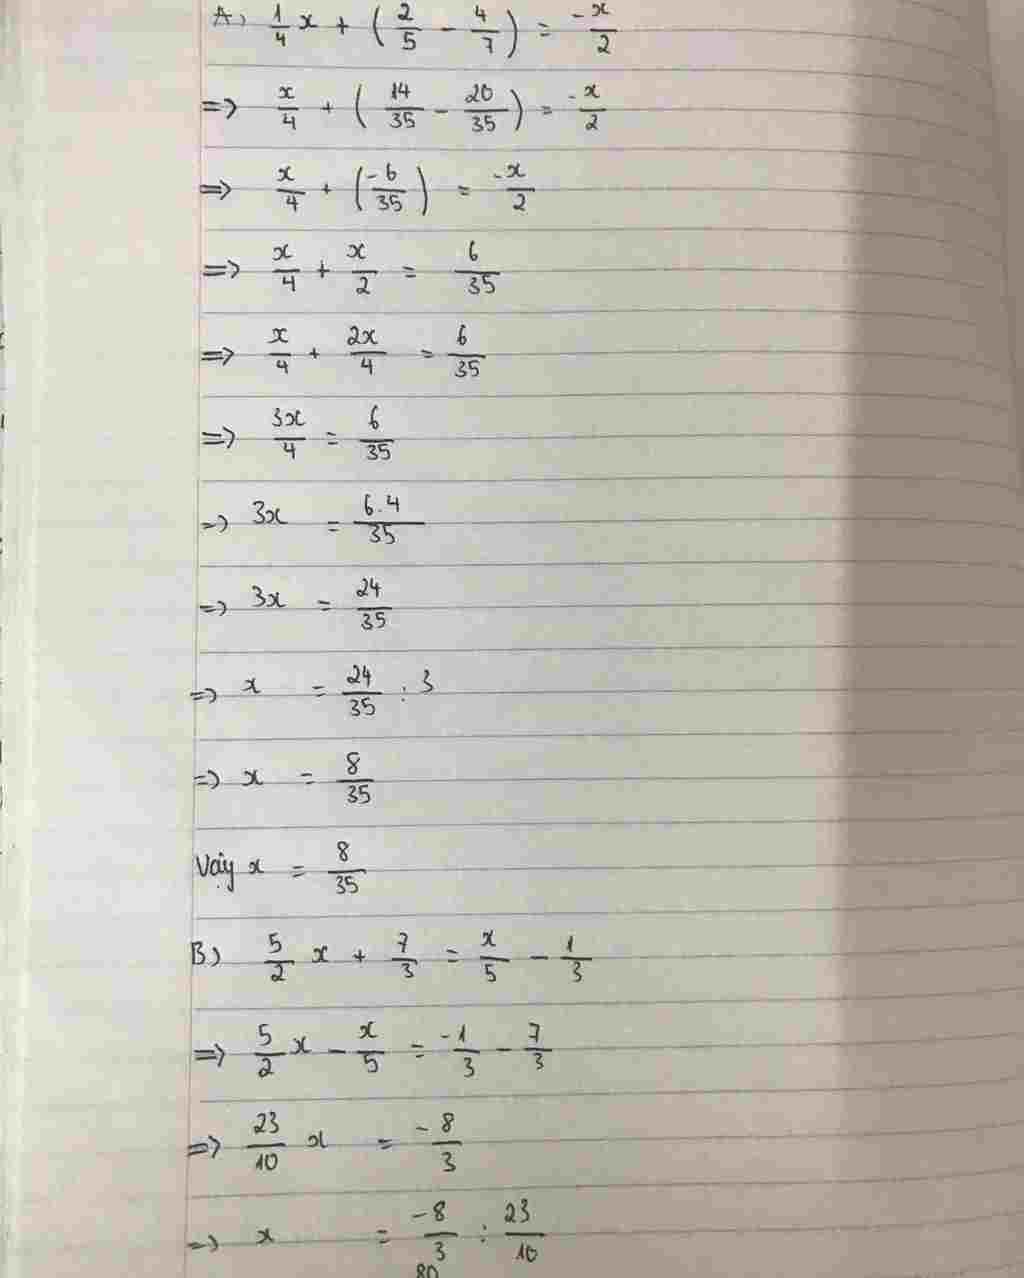 A) 1/4 x + (2/5 - 4/7) = -x/2
=> x/4 + (14/35 - 20/35) = -x/2
=> x/4 + (-6/35) = -x/2
=> x/4 + x/2 = 6/35
=> x/4 + 2x/4 = 6/35
=> 3x/4 = 6/35
=> 3x = 6.4/35
=> 3x = 24/35
=> x = 24/35 : 3
=> x = 8/35
Vậy x = 8/35
B) 5/2 x + 7/3 = x/5 - 1/3
=> 5/2 x - x/5 = -1/3 - 7/3
=> 23/10 x = -8/3
=> x = -8/3 : 23/10
80